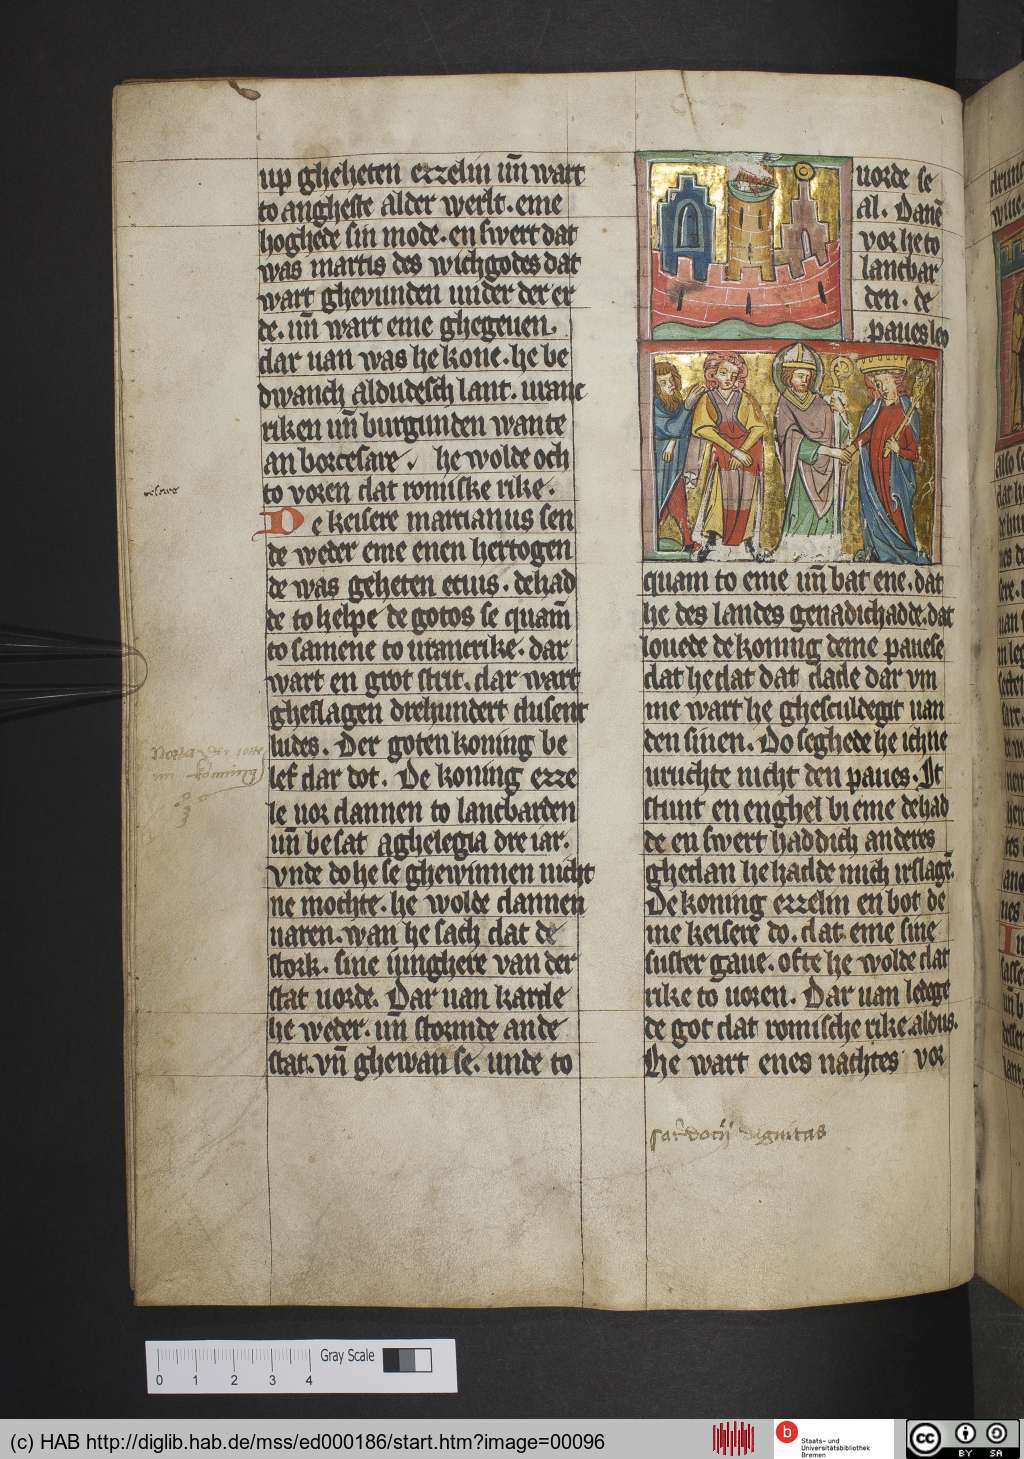 up gheheten ezzelin uñ wart
to angheste alder werlt. eme
hoghede sin mode. en swert dat
was martis des wichgodes dat
wart ghevunden under der er
de. uñ wart eme ghegeuen.
dar uan was he kone. he be
dwanch aldudesch lant. uranc
riken uñ burgunden wante
an borcesare. he wolde och
to voren dat romiske rike.
De keisere martianus sen
de weder eme enen hertogen
de was geheten etius. de had
de to helpe de gotos se quam̄
to samene to urancrike. dar
wart en grot strit. dar wart
gheslagen drehundert dusent
ludes. Der goten koning be
lef dar dot. De koning ezze
le uor dannen to lancbarden
uñ besat aghelegia dre iar.
vnde do he se ghewinnen nicht
ne mochte. he wolde dannen
uaren. wan he sach dat de
stork. sine iunghere van der
stat uorde. Dar uan karde
he weder. uñ stormde an de
stat. vñ ghewan se. unde to
uorde se
al. Danē
vor he to
lancbar
den. de
paues leo
quam to eme uñ bat ene. dat
he des landes genadich adde. dat
louede de koning deme pauese
dat he dat dat dade dar vm
me wart he ghesculdegit uan
den sinen. Do seghede he ich ne
uruchte nicht den paues. It
stunt en enghel bi eme de had
de en swert hadd ich anderes
ghedan he hadde mich irslagē.
De koning ezzelin en bot de
me keisere do. dat eme sine
suster gaue. ofte he wolde dat
rike to uoren. Dar uan ledege
de got dat romische rike. aldus.
He wart enes nachtes vor
dignitas
Gray Scale
0 1 2 3 4
(c) HAB http://diglib.hab.de/mss/ed000186/start.htm?image=00096
b
Staats- und
Universitätsbibliothek
Bremen
cc
BY SA